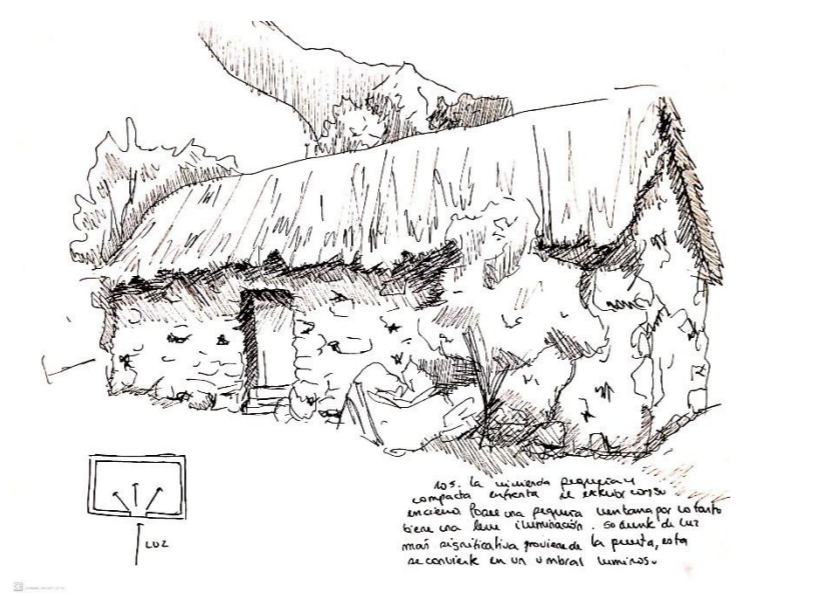 LUZ
105. La vivienda pequeña y
compacta enfrenta el exterior con su
encierro Posee una pequeña ventana por lo tanto
tiene una leve iluminación. Su fuente de luz
más significativa proviene de la puerta, esta
se convierte en un umbral luminoso